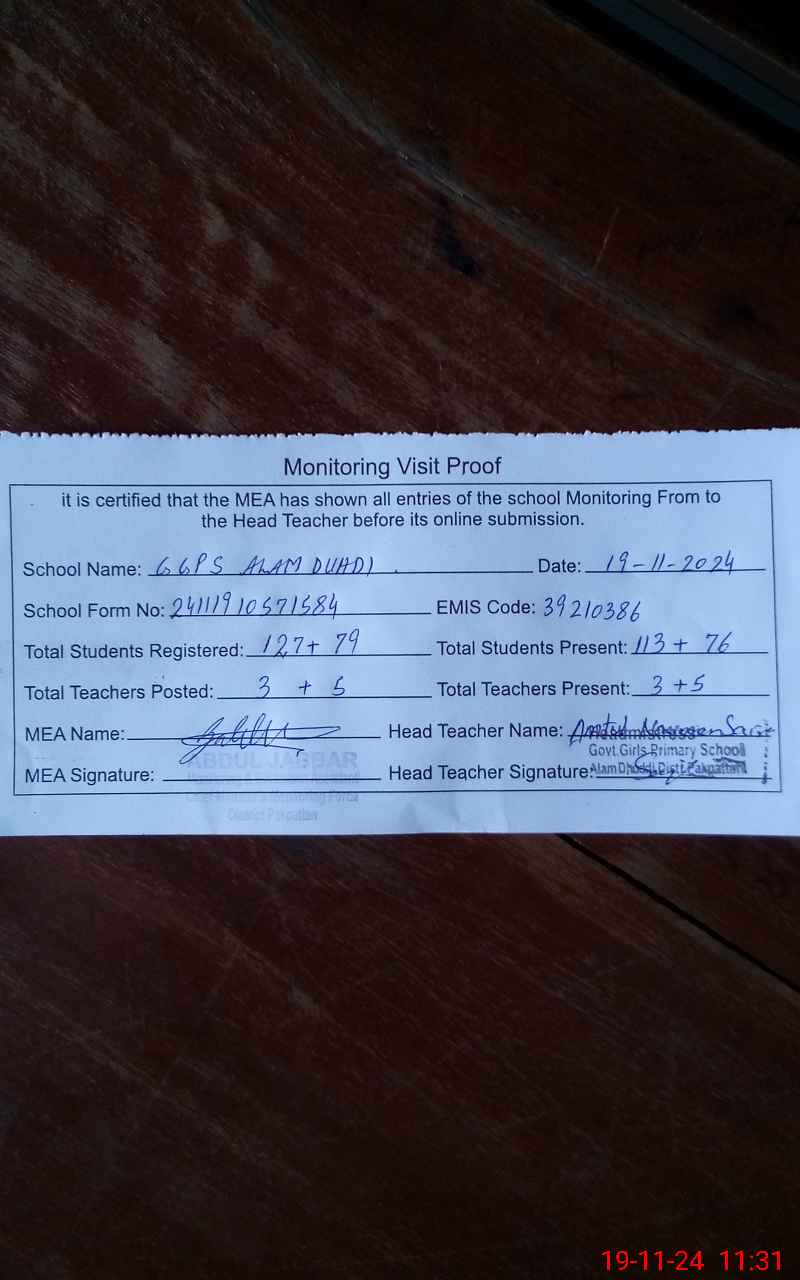 Monitoring Visit Proof
it is certified that the MEA has shown all entries of the school Monitoring From to
the Head Teacher before its online submission.
School Name: GGPS ALAM DUHDI. Date: 19-11-2024
School Form No: 24111910571584 EMIS Code: 39210386
Total Students Registered: 127+ 79 Total Students Present: 113 + 76
Total Teachers Posted: 3 + 5 Total Teachers Present: 3 +5
MEA Name: Head Teacher Name:
ABDUL JABBAR
Govt.Girls Primary School
MEA Signature: Head Teacher Signature:
Alam Dhuddi Distt.Pakpattan
Monitoring & Evaluation Assistant
Chief Minister's Monitoring Force
District Pakpattan
19-11-24 11:31